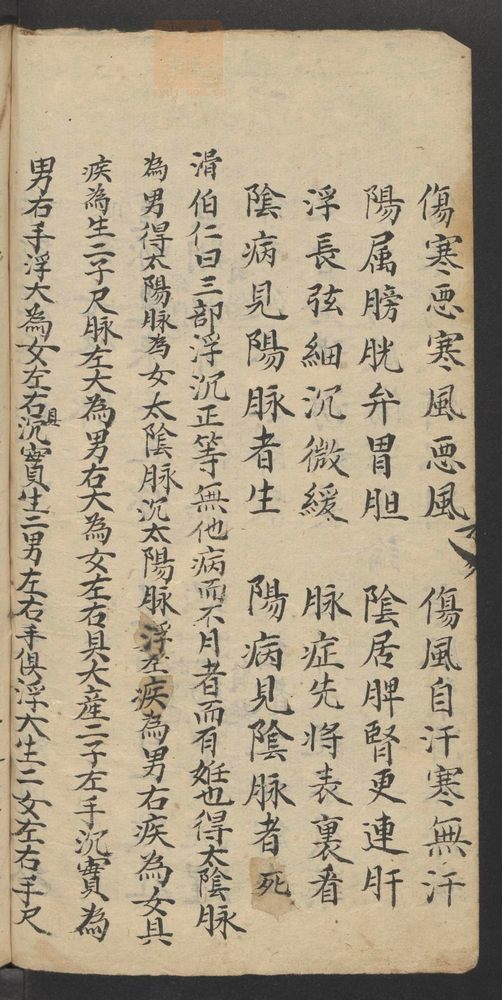 傷寒悪寒風悪風　傷風自汗寒無汗
陽属膀胱弁胃胆　陰居脾腎更連肝
浮長弦細沉微緩　脉症先将表裏看
陰病見陽脉者生　陽病見陰脉者死
滑伯仁曰三部浮沉正等無他病而不月者而有妊也得太陰脉
為男得太陽脉為女太陰脉沉太陽脉浮左疾為男右疾為女具
疾為生二子尺脉左大為男右大為女左右具大産二子左手沉實為
男右手浮大為女左右具沉實生二男左右手俱浮大生二女左右手尺